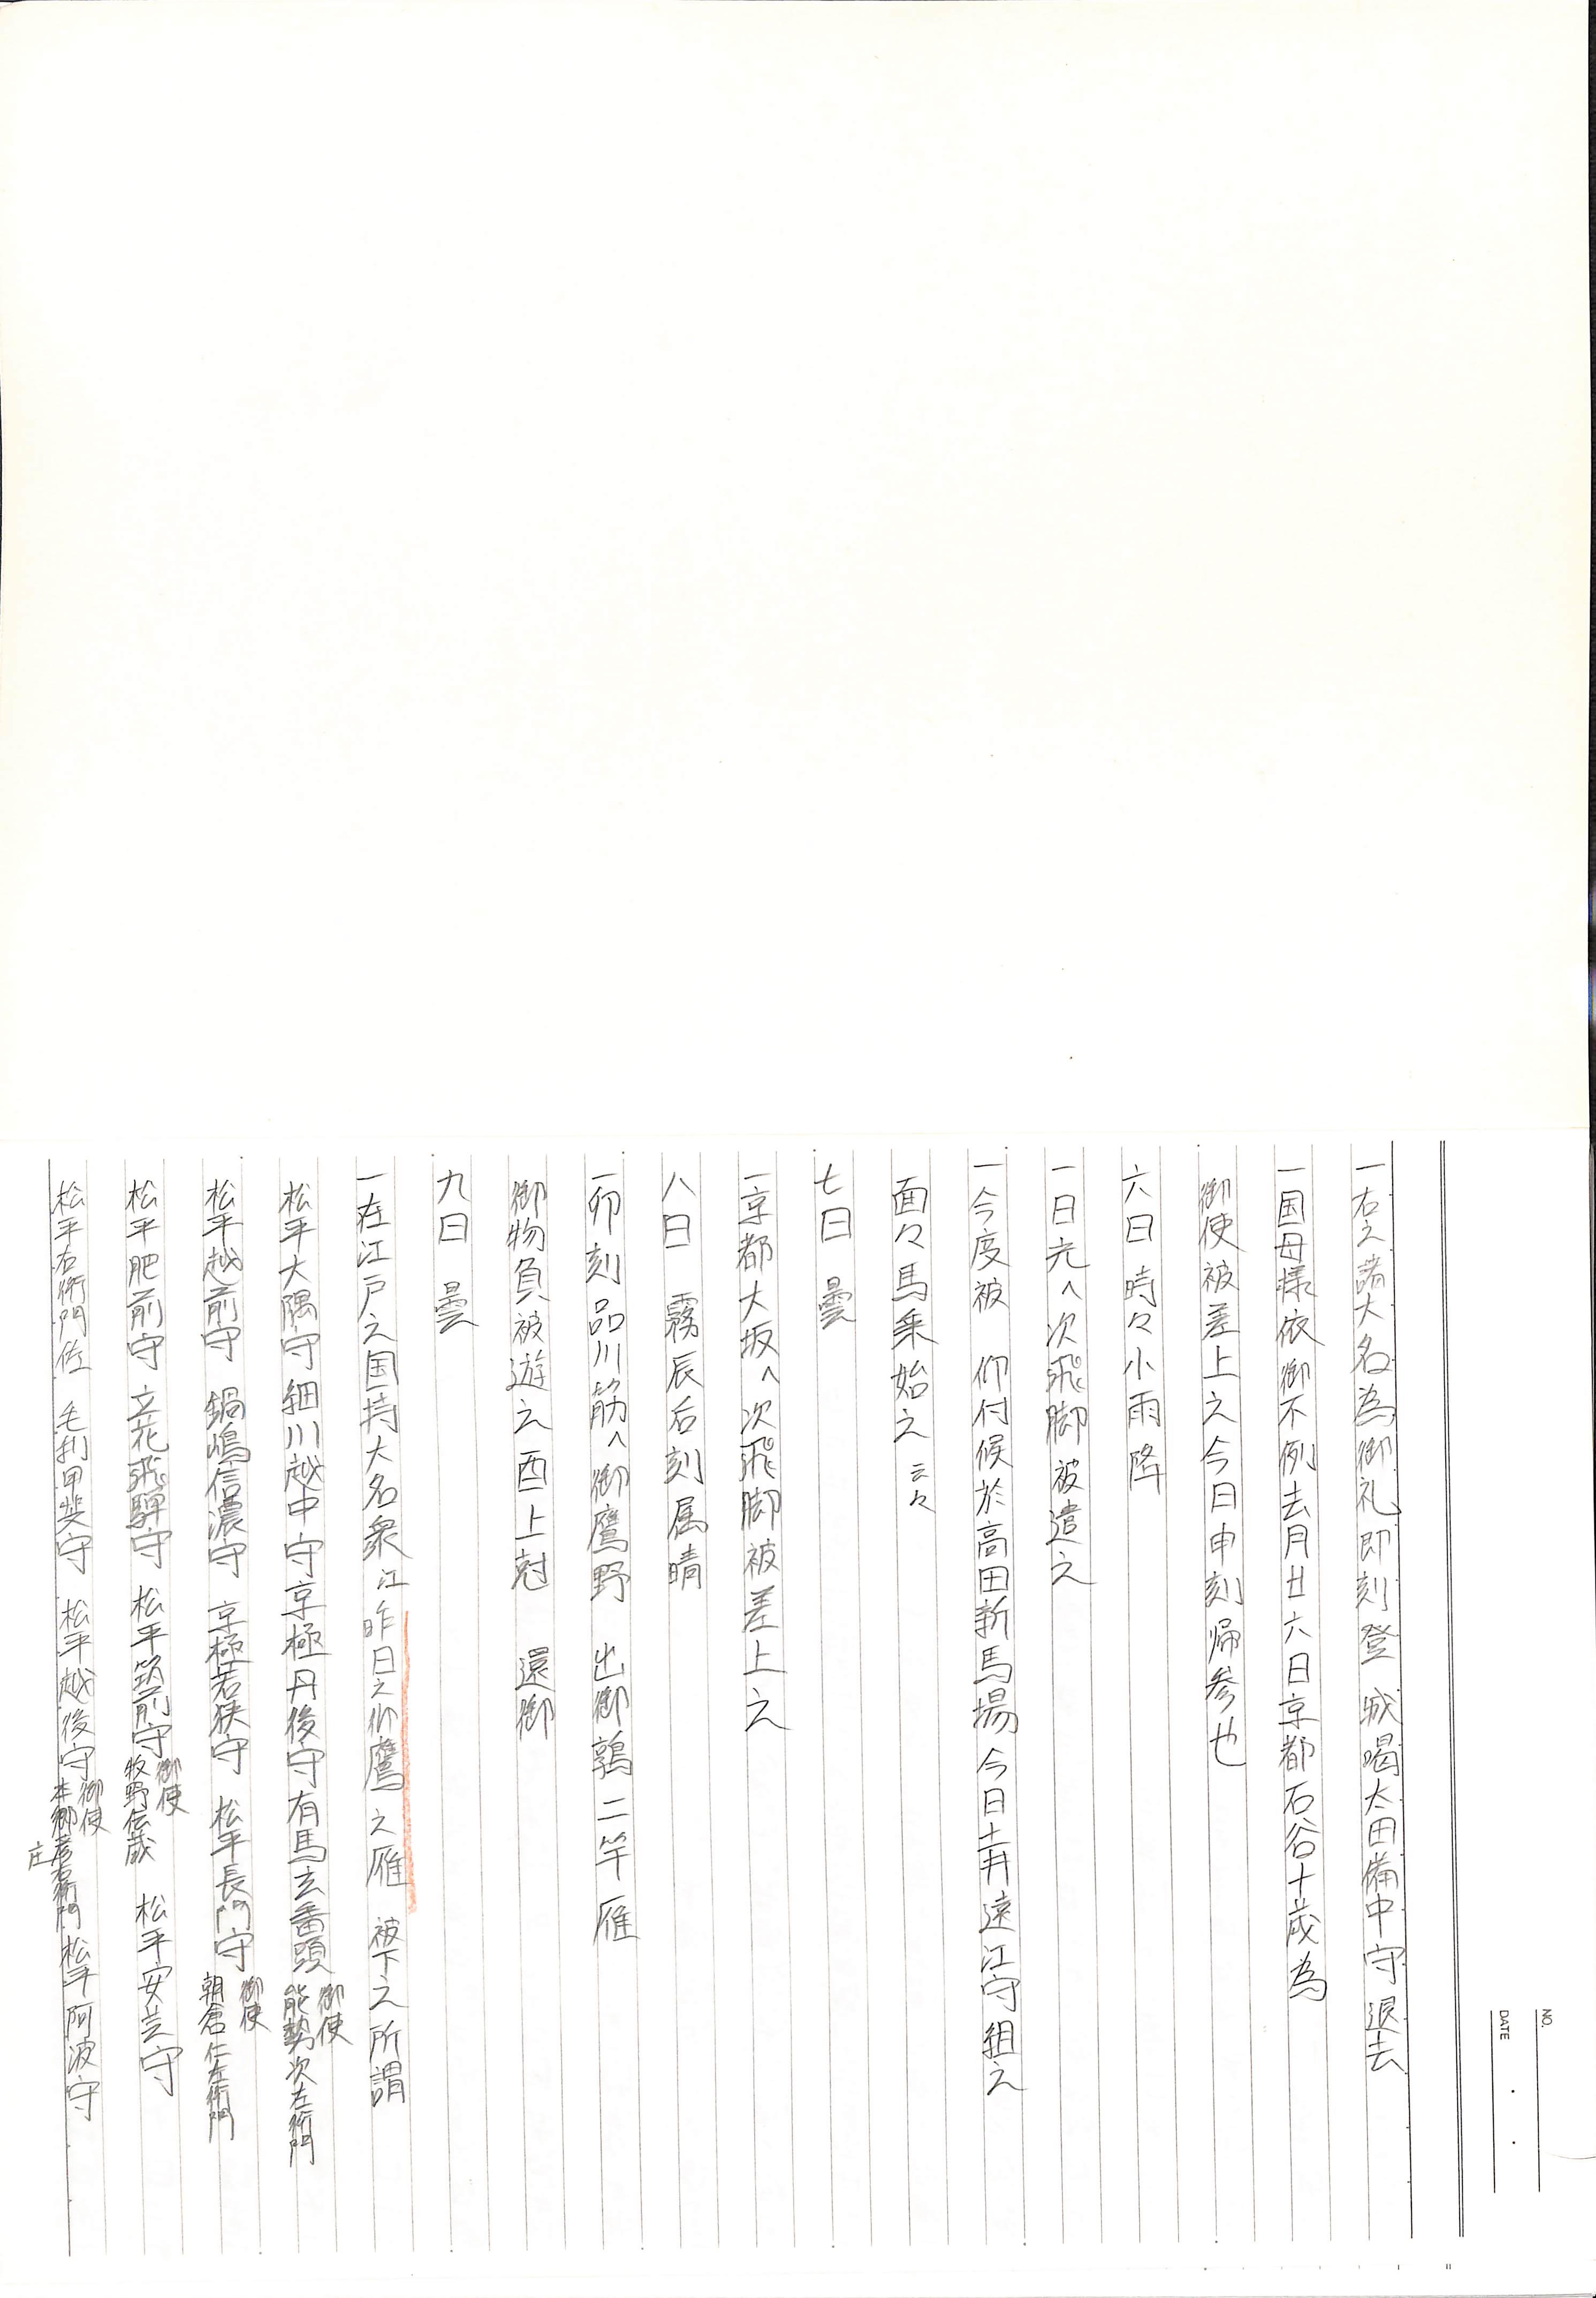 NO.
DATE
一右之諸大名為御礼即刻登 城喝太田備中守退去
一国母様依御不例去月廿六日京都石谷十歳為
御使被差上之今日申刻帰参也
六日 時々小雨降
一日光へ次飛脚被遣之
一今度被 仰付候於高田新馬場今日土井遠江守組之
面々馬乗始之 云々
七日 曇
一京都大坂へ次飛脚被差上之
八日 霧辰后刻属晴
一卯刻品川筋へ御鷹野 出御鶉二竿雁
御物負被遊之酉上尅 還御
九日 曇
一在江戸之国持大名衆江昨日之御鷹之雁 被下之所謂
松平大隅守 細川越中守 京極丹後守 有馬玄蕃頭 御使 能勢次左衛門
松平越前守 鍋嶋信濃守 京極若狭守 松平長門守 御使 朝倉仁左衛門
松平肥前守 立花飛騨守 松平筑前守 御使 牧野伝蔵 松平安芸守
松平右衛門佐 毛利甲斐守 松平越後守 御使 本郷庄右衛門 松平阿波守
庄